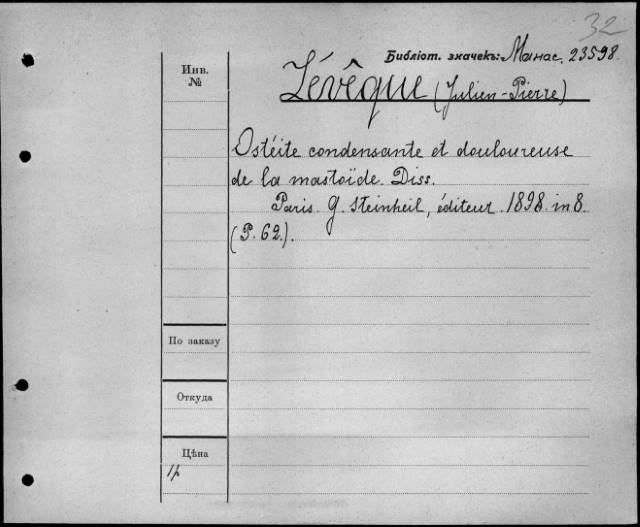 32
Библіот. значекъ: Манас. 23598.
Инв.
№
Lévêque (Julien-Pierre)
Ostéite condensante et douloureuse
de la mastoïde. Diss.
Paris. G. Steinheil, éditeur. 1898. in 8.
(P. 62.).
По заказу
Откуда
Цѣна
1р